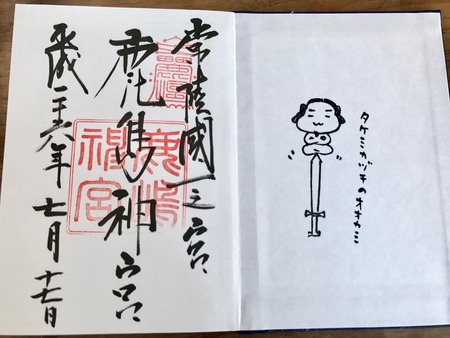 タケミカヅチのオオカミ
常陸國一之宮
鹿島神宮
鹿嶋
神宮
平成二十六年七月十七日